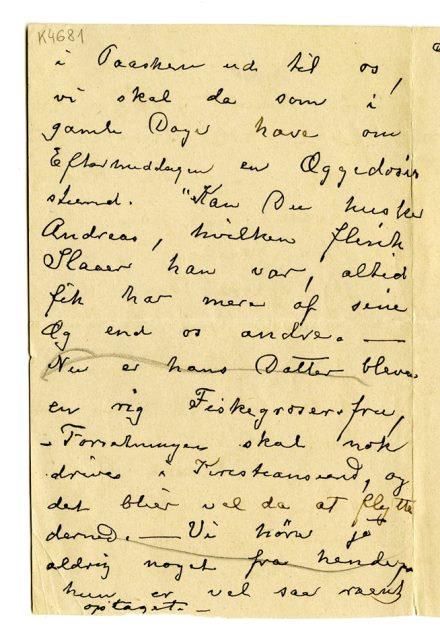 K4681
i Paasken ud til os,
vi skal da som i
gamle Dager have om
Eftermiddagen en Æggedosis
stund. "Kan Du husker
Andreas, hvilken flink
Slaaer han var, altid
fik han mere af sine
Æg end os andre. —
Nu er hans Datter bleven
en rig Fiskegrosserfru,
- Forretningen skal nok
drives i Kristiansund, og
det blir vel da at flytte
derned. — Vi hører jo
aldrig noget fra hende,
hun er vel saa
optaget. -